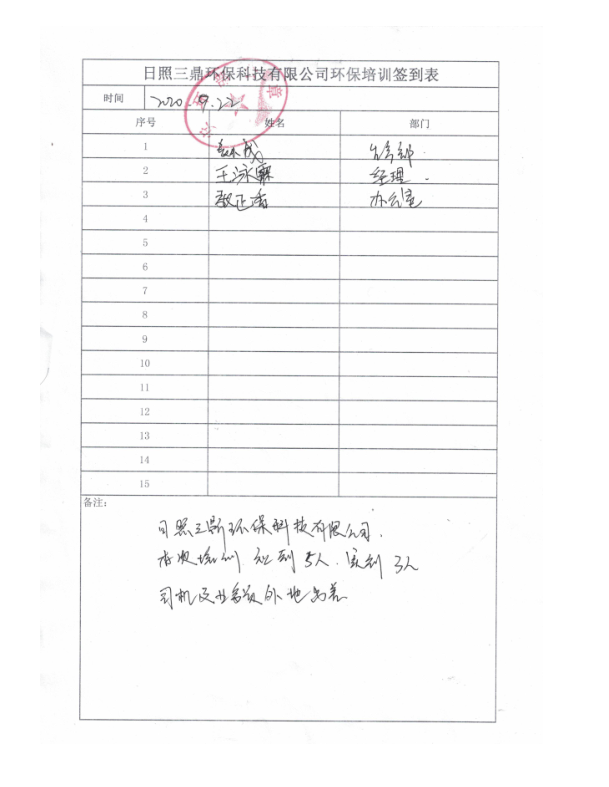 日照三鼎环保科技有限公司环保培训签到表
时间 2020.9.22
序号 姓名 部门
1 业务部.
2 王泳霖 经理.
3 正 办公室
4
5
6
7
8
9
10
11
12
13
14
15
备注:
日照三鼎环保科技有限公司.
本次培训,应到5人,实到3人
司机及业务员外地出差